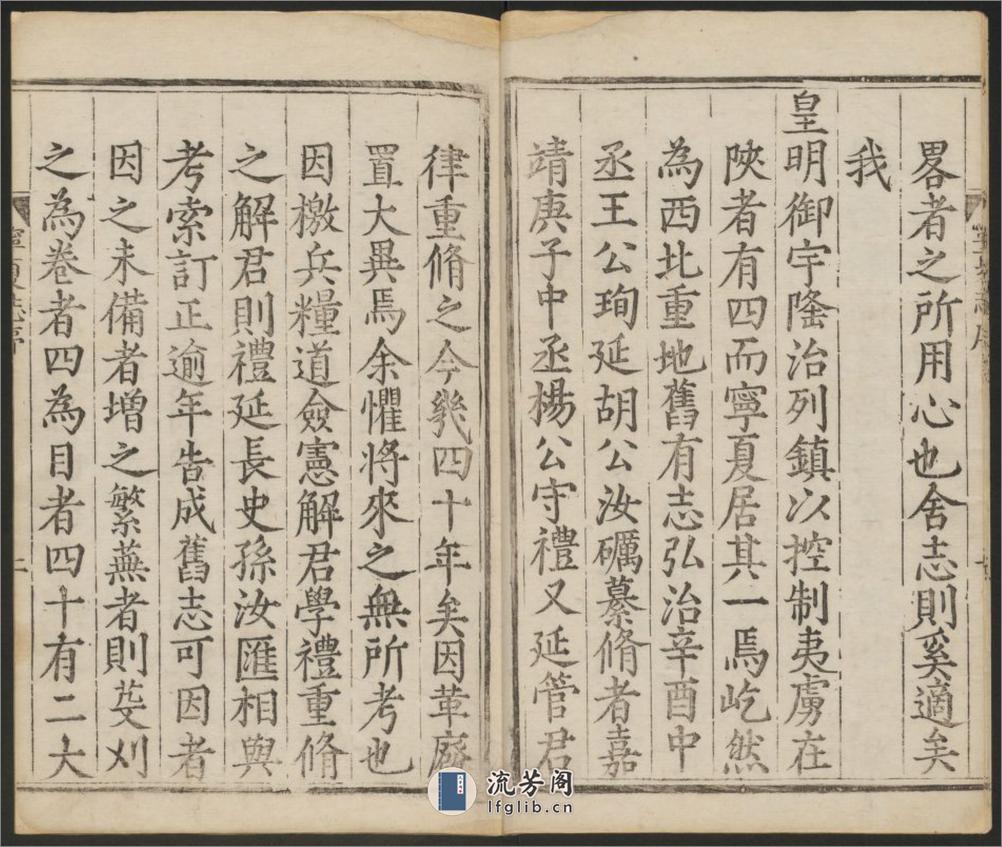 畧者之所用心也舍志則奚適矣
我
皇明御宇隆治列鎮以控制夷虜在
陝者有四而寧夏居其一焉屹然
為西北重地舊有志弘治辛酉中
丞王公珣延胡公汝礪纂脩者嘉
靖庚子中丞楊公守禮又延管君
律重脩之今幾四十年矣因革廢
置大異焉余懼將來之無所考也
因檄兵糧道僉憲解君學禮重脩
之解君則禮延長史孫汝匯相與
考索訂正逾年告成舊志可因者
因之未備者增之繁蕪者則芟刈
之為卷者四為目者四十有二大
寧夏志序
二
流芳阁
lfglib.cn